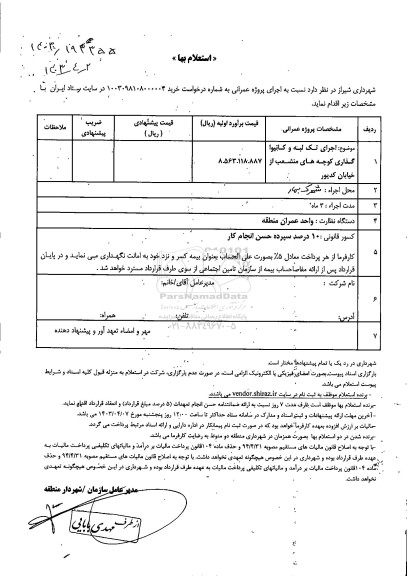 ۱۴۰۳،۱۹۴۳۵۵
۱۴۰۳،۴،۲
« استعلام بها »
شهرداری شیراز در نظر دارد نسبت به اجرای پروژه عمرانی به شماره درخواست خرید ۱۰۰۳۰۹۸۱۰۸۰۰۰۰۰۴ در سایت ستاد ایران با
مشخصات زیر اقدام نماید.
ردیف مشخصات پروژه عمرانی قیمت برآورد اولیه (ریال) قیمت پیشنهادی (ریال) ضریب پیشنهادی ملاحظات
۱ موضوع: اجرای تک لبه و کانیوا گذاری کوچه های منشعب از خیابان کدیور ۸.۵۶۳.۱۱۸.۸۸۷
۲ محل اجراء : شهرک بهار
۳ مدت اجراء : ۳ ماه
۴ دستگاه نظارت : واحد عمران منطقه
کسور قانونی : ۱۰ درصد سپرده حسن انجام کار
۵ کارفرما از هر پرداخت معادل ۵٪ بصورت علی الحساب بعنوان بیمه کسر و نزد خود به امانت نگهداری می نماید و در پایان
قرارداد پس از ارائه مفاصاحساب بیمه از سازمان تامین اجتماعی از سوی طرف قرارداد مسترد خواهد شد .
۶ نام شرکت : مدیرعامل آقای/خانم:
آدرس: تلفن: همراه:
۷ مهر و امضاء تعهد آور و پیشنهاد دهنده
ParsNamadData
۰۲۱-۸۸۳۴۹۶۷۰-۵
شهرداری در رد یک یا تمام پیشنهادها مختار است.
بارگزاری اسناد پیوست بصورت امضاء فیزیکی یا الکترونیک الزامی است، در صورت عدم بارگزاری، شرکت در استعلام به منزله قبول کلیه اسناد و شرایط
پیوست استعلام می باشد.
-برنده استعلام موظف به ثبت نام در سایت vendor.shiraz.ir می باشند.
-برنده استعلام بها موظف است ظرف مدت ۷ روز نسبت به ارائه ضمانتنامه حسن انجام تعهدات (۵ درصد مبلغ قرارداد) و انعقاد قرارداد اقدام نماید.
-آخرین مهلت ارائه پیشنهادات و ثبت اسناد و مدارک در سامانه ستاد حداکثر تا ساعت ۱۲:۰۰ روز پنجشنبه مورخ ۱۴۰۳/۰۴/۰۷ می باشد.
-مالیات بر ارزش افزوده بعهده کارفرما خواهد بود که در صورت ثبت نام پیمانکار در اداره دارایی و ارائه اسناد مرتبط پرداخت می گردد.
-برنده شدن در دو استعلام بها بصورت همزمان در شهرداری منطقه دو منوط به رضایت کارفرما می باشد.
-با توجه به اصلاح قانون مالیات های مستقیم مصوبه ۹۴/۴/۳۱ و حذف ماده ۱۰۴ قانون پرداخت مالیات بر درآمد و مالیاتهای تکلیفی پرداخت مالیات به
عهده طرف قرارداد بوده و شهرداری در این خصوص هیچگونه تعهدی نخواهد داشت. با توجه به اصلاح قانون مالیات های مستقیم مصوبه ۹۴/۴/۳۱ و حذف
ماده ۱۰۴ قانون پرداخت مالیات بر درآمد و مالیاتهای تکلیفی پرداخت مالیات به عهده طرف قرارداد بوده و شهرداری در این خصوص هیچگونه تعهدی
نخواهد داشت.
مدیرعامل سازمان / شهردار منطقه
از طرف
مهدی بابایی